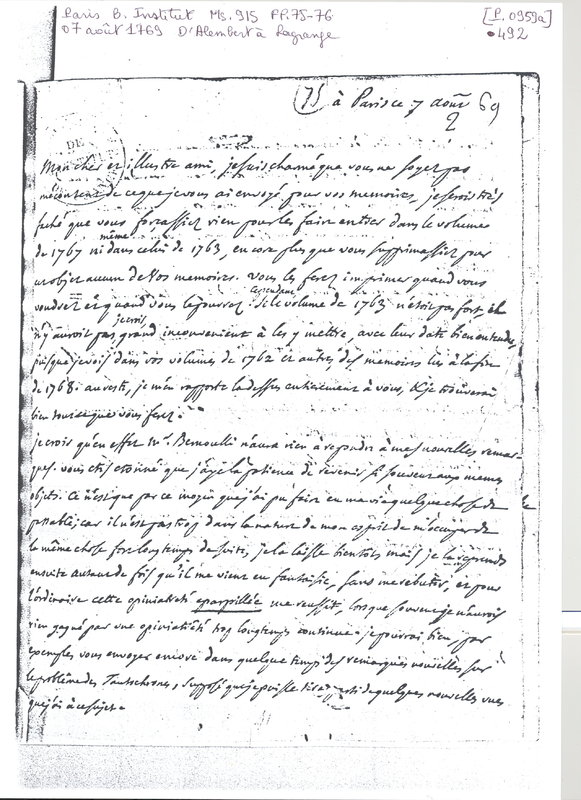 Paris B. Institut MS. 915 PP. 75-76
07 août 1769 D'Alembert à Lagrange
[P. 0959a]
•492
75 à Paris ce 7 août 69
2
DE
Mon cher et illustre ami, je suis charmé que vous ne soyez pas
mécontent de ce que je vous ai envoyé pour vos memoires, je serois très
faché que vous forçassiez rien pour les faire entrer dans le volume
de 1767 ni même dans celui de 1763, encore plus que vous supprimassiez pour
cet objet aucun de vos memoires. Vous les ferez imprimer quand vous
voudrez et quand vous le pourrez. Si cependant le volume de 1763 n'étoit pas fort, il
n'y auroit je crois pas grand inconvenient à les y mettre, avec leur date bien entendu,
puisque je vois dans vos volumes de 1762 et autres, des memoires lus à la fin
de 1768. au reste, je m'en rapporte la dessus entierement à vous, & je trouverai
bien tout ce que vous ferez.
je crois qu'en effet Mr. Bernoulli n'aura rien à repondre à mes nouvelles remar-
ques. vous etes etonné que j'aye la patience de revenir si souvent aux memes
objets. Ce n'est que par ce moyen que j'ai pu faire en ma vie quelque chose de
passable; car il n'est pas trop dans la nature de mon esprit de m'occuper de
la même chose fort longtemps de suite, je la laisse bientôt, mais je la reprends
ensuite autant de fois qu'il me vient en fantaisie, sans me rebuter, et pour
l'ordinaire cette opiniatreté eparpillée me reussit, lorsque souvent je n'aurois
rien gagné par une opiniatreté trop longtemps continue. je pourrai bien, par
exemple, vous envoyer encore dans quelque temps des remarques nouvelles sur
le problême des Tautochrones, supposé que je puisse tirer parti de quelques nouvelles vues
que j'ai à ce sujet.